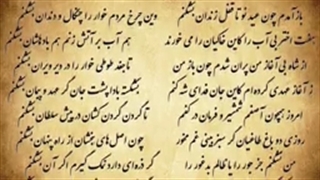 بازآمدم چون عید نو تا قفل زندان بشکنم وین چرخ مردم خوار را چنگال و دندان بشکنم
هفت اختر بی آب را کاین خاکیان را می خورند هم آب بر آتش زنم هم بادهاشان بشکنم
از شاه بی آغاز من پران شدم چون باز من تا جغد طوطی خوار را در دیر ویران بشکنم
ز آغاز عهدی کرده ام کاین جان فدای شه کنم بشکسته بادا پشت جان گر عهد و پیمان بشکنم
امروز همچون آصفم شمشیر و فرمان در کفم تا گردن گردن کشان در پیش سلطان بشکنم
روزی دو باغ طاغیان گر سبز بینی غم مخور چون اصل های بیخشان از راه پنهان بشکنم
من نشکنم جز جور را یا ظالم بدغور را گر ذره ای دارد نمک گیرم اگر آن بشکنم